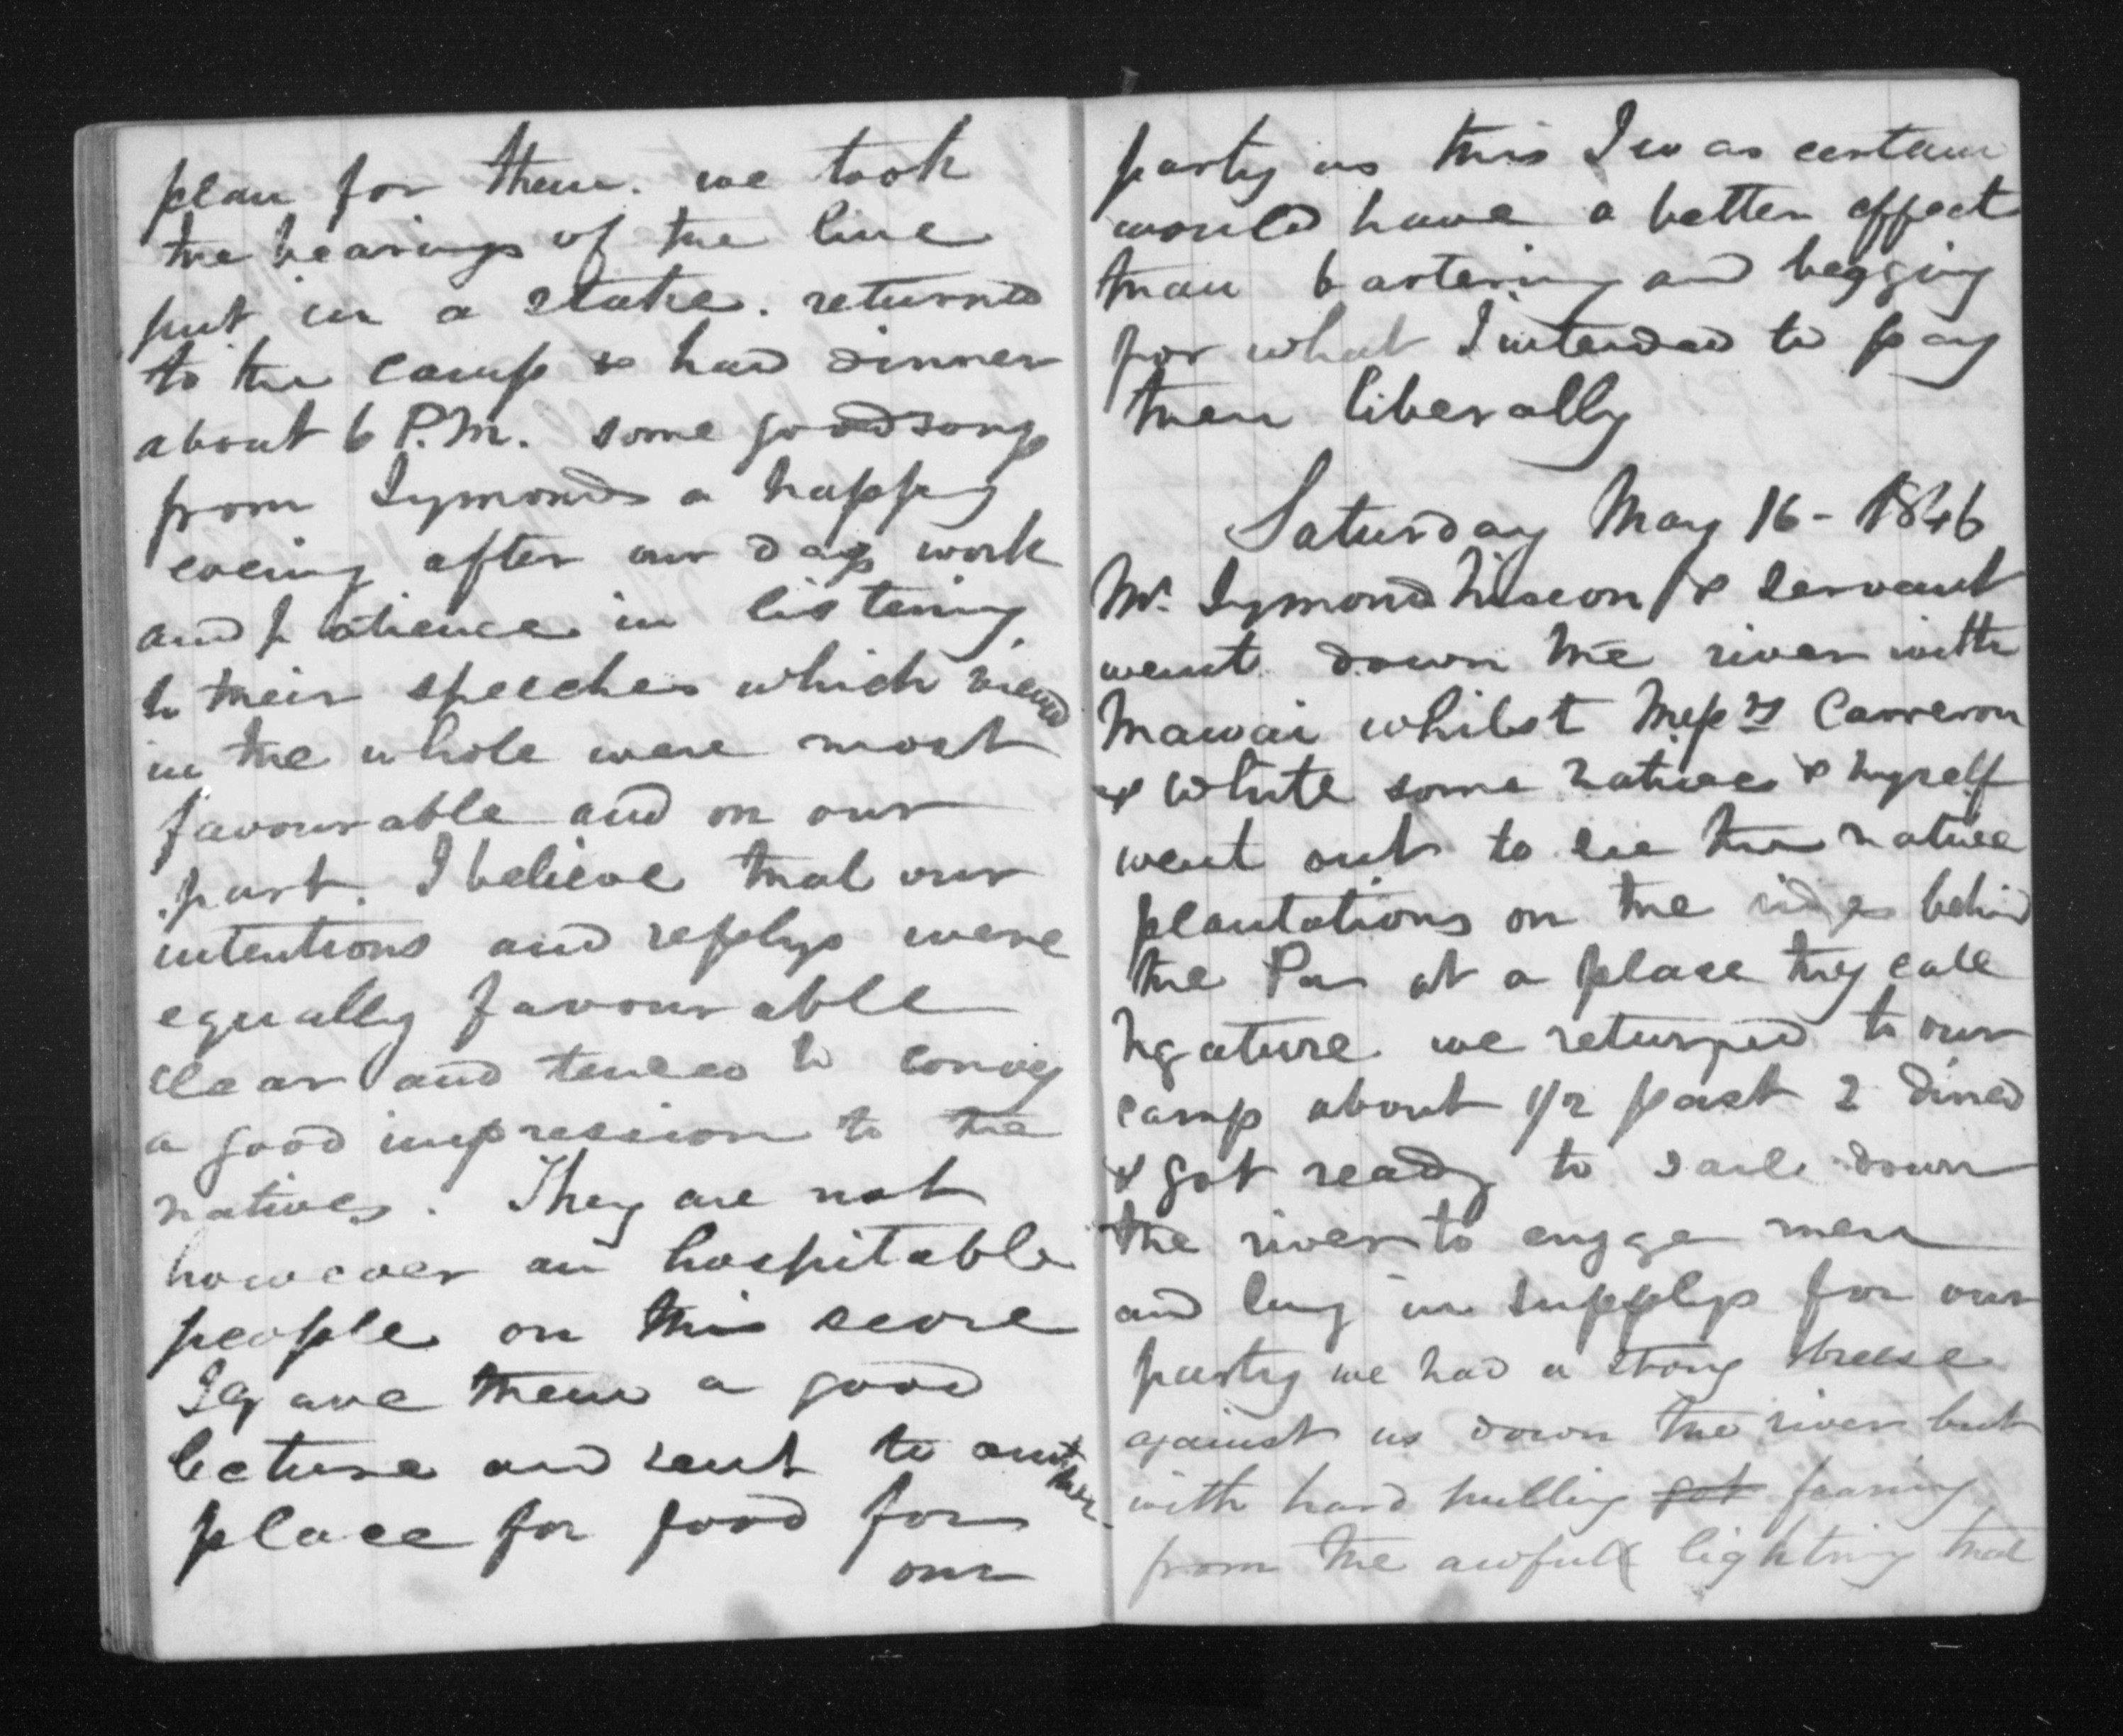 plan for them. we took
the bearings of the line
put in a stake. returned
to the camp & had dinner
about 6 P.M. some good songs
from Symonds a happy
evening after our days work
and patience in listening
to their speeches which viewed
in the whole were most
favourable and on our
part. I believe that our
intentions and replys were
equally favourable
clear and tended to convey
a good impression to the
natives. They are not
however an hospitable
people on this score
I gave them a good
lecture and sent to another
place for food for
our
party as this I was certain
would have a better effect
than bartering and begging
for what I intended to pay
them liberally
Saturday May 16 - 1846
Mr. Symonds & servant
went down the river with
Mawai whilst Messrs Cameron
& White some natives & myself
went out to see the native
plantations on the ridges behind
the Pa at a place they call
Ngature we returned to our
camp about 1/2 past 2 dined
& got ready to sail down
the river to engage men
and lay in supplys for our
party we had a strong breese
against us down the river but
with hard pulling got fearing
from the awful lighting that